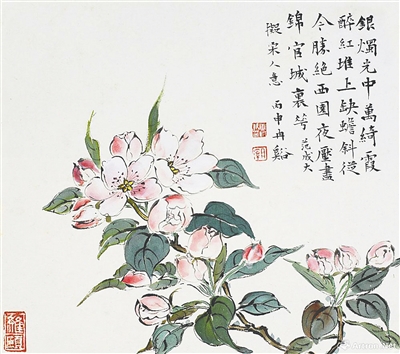 銀燭光中萬綺霞
醉紅堆上缺蟾斜從
今勝絶西園夜壓盡
錦官城裏花 范成大
擬宋人意 丙申冉谿